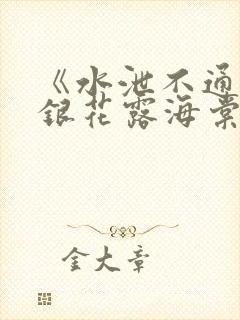 《水泄不通
銀花露海棠
金大章